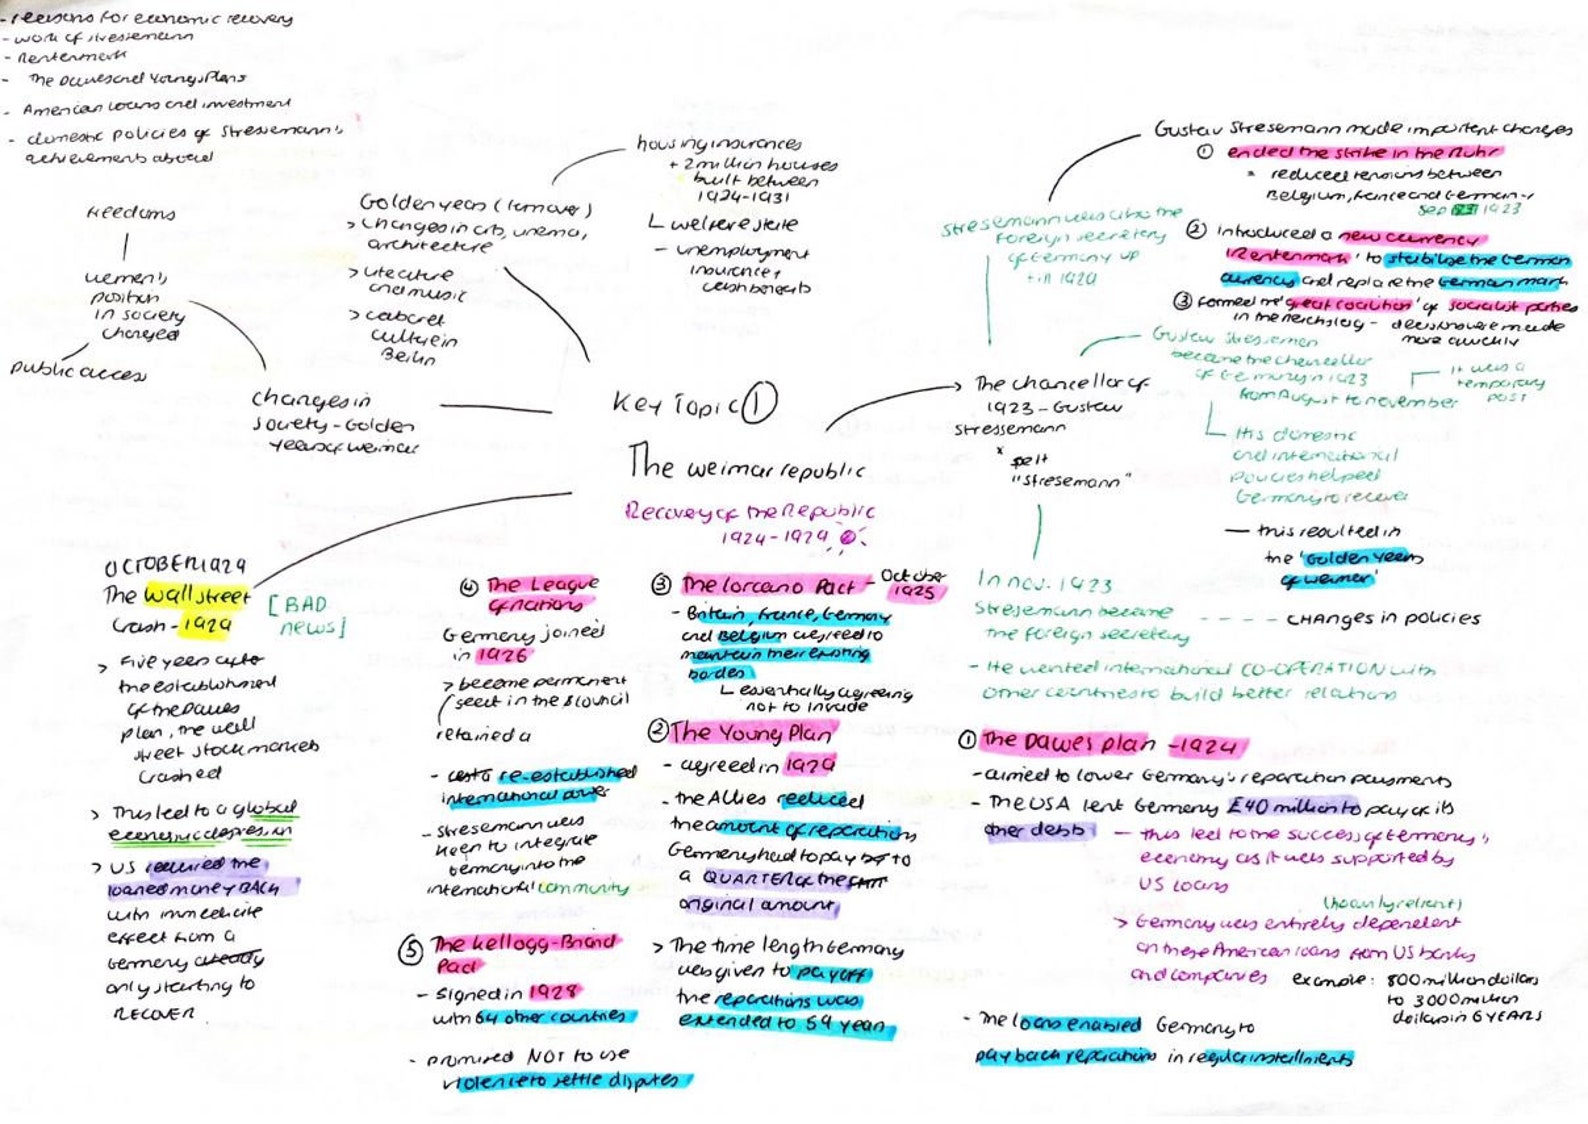 - reasons for economic recovery
- work of stresemann
- Rentenmark
- The Dawes and Youngs Plans
- American loans and investment
- domestic policies of Stresemann's
achievements abroad
Freedoms
women's
position
in society
changed
public access
changes in
society - Golden
years of weimar
Golden years (turnover)
> changes in arts, cinema,
architecture
> literature
and music
> cabaret
culture in
Berlin
housing insurances
+ 2 million houses
built between
1924-1931
L welfare state
- unemployment
insurance +
cash benefits
Key Topic ①
The weimar republic
Recovery of the Republic
1924-1929
The chancellor of
1923 - Gustav
stressemann
* spelt
"stresemann"
stresemann was also the
foreign secretary
of Germany up
till in 1929
Gustav Stresemann made important changes
① ended the strike in the Ruhr
* reduced tensions between
Belgium, France and Germany
Sep 1923
② introduced a new currency
'Rentenmark' to stabilise the German
currency and replace the German mark
③ formed the 'great coalition' of socialist parties
in the reichstag - decisions were made
more quickly
Gustav Stresemann
became the chancellor
of Germany in 1923
from August to november
it was a
temporary
post
His domestic
and international
policies helped
Germany to recover
- this resulted in
the 'Golden years
of weimar'
In nov. 1923
Stresemann became
the foreign secretary
- - - - CHANGES in policies
- He wanted international CO-OPERATION with
other countries to build better relations
① The Dawes plan - 1924
- aimed to lower Germany's reparation payments
- The USA lent Germany £40 million to pay of its
other debts
- this led to the success of Germany's
economy as it was supported by
US loans
(heavily reliant)
> Germany was entirely dependent
on these American loans from US banks
and companies
example: 800 million dollars
to 3000 million
dollars in 6 YEARS
- The loans enabled Germany to
pay back reparations in regular installments
③ The Lorcano Pact - October
1925
- Britain, France, Germany
and Belgium agreed to
maintain their existing
borders
L essentially agreeing
not to invade
② The Young Plan
- agreed in 1929
- the Allies reduced
the amount of reparations
Germany had to pay to
a QUARTER of the
original amount
> The time length Germany
was given to pay off
the reparations was
extended to 59 year
④ The League
of nations
Germany joined
in 1926
> became permanent
seat in the council
retained a
- re-established
international power
- Stresemann was
keen to integrate
Germany into the
international community
⑤ The Kellogg-Briand
Pact
- signed in 1928
with 64 other countries
- promised NOT to use
violence to settle disputes
OCTOBER 1929
The Wall street
Crash - 1929
[BAD
news]
> Five years after
the establishment
of the Dawes
plan, the wall
street stock markets
crashed
> This led to a global
economic depression
> US required the
loaned money BACK
with immediate
effect from a
Germany already
only starting to
RECOVER